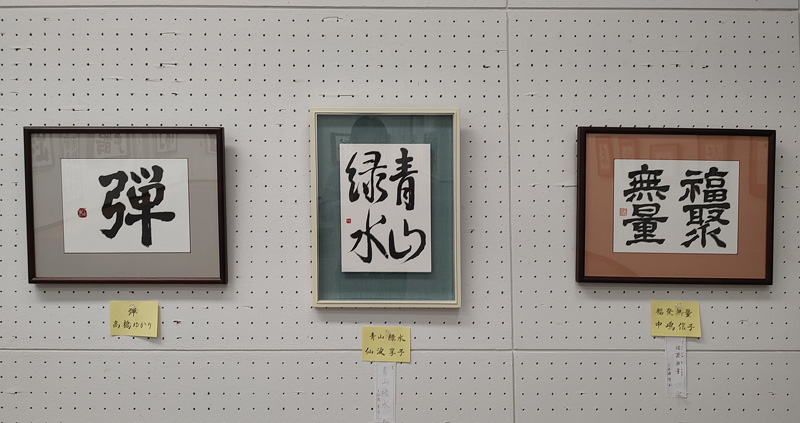 弾
弾
高橋ゆかり
青山
緑水
青山緑水
仙波享子
福聚
無量
福聚無量
中嶋信子